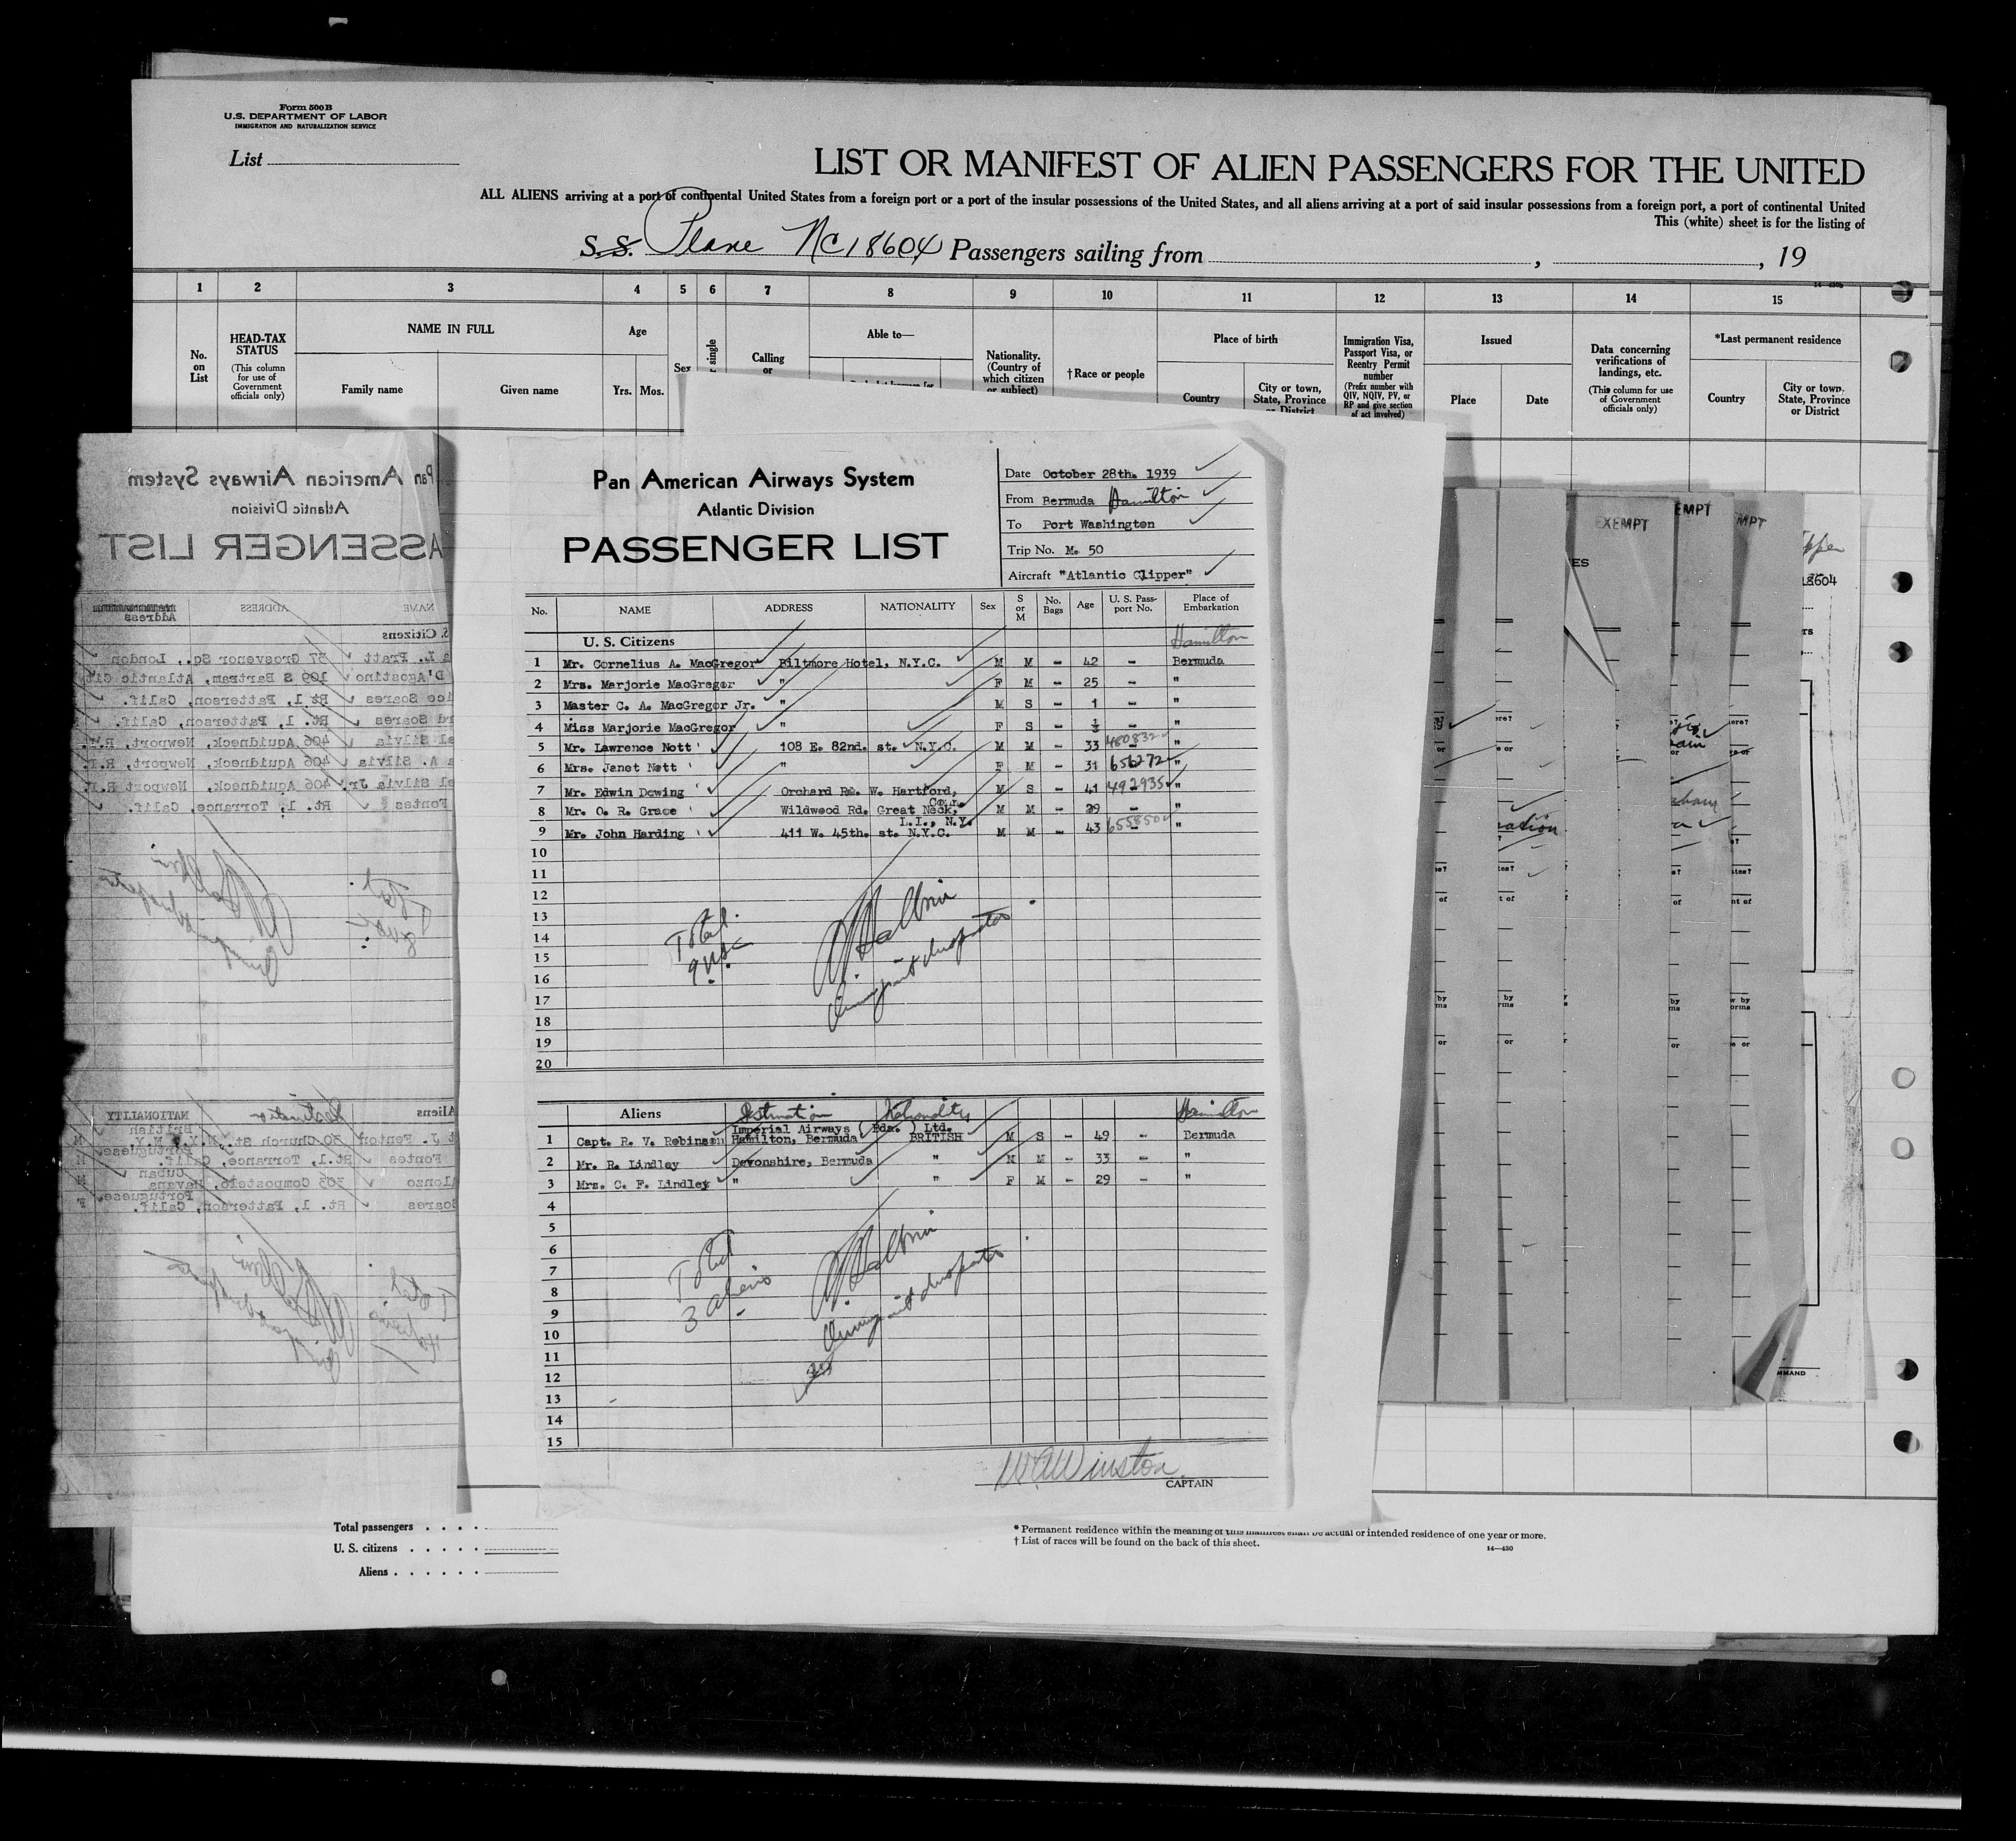 Form 500B
U.S. DEPARTMENT OF LABOR
IMMIGRATION AND NATURALIZATION SERVICE
List
LIST OR MANIFEST OF ALIEN PASSENGERS FOR THE UNITED
ALL ALIENS arriving at a port of continental United States from a foreign port or a port of the insular possessions of the United States, and all aliens arriving at a port of said insular possessions from a foreign port, a port of continental United
This (white) sheet is for the listing of
S.S. Plane NC18604 Passengers sailing from , , 19
1 2 3 4 5 6 7 8 9 10 11 12 13 14 15
No. on List
HEAD-TAX STATUS (This column for use of Government officials only)
NAME IN FULL
Family name Given name
Age
Yrs. Mos.
Sex
single
Calling or
Able to—
Nationality. (Country of which citizen or subject)
†Race or people
Place of birth
Country City or town, State, Province or District
Immigration Visa, Passport Visa, or Reentry Permit number (Prefix number with QIV, NQIV, PV, or RP and give section of act involved)
Issued
Place Date
Data concerning verifications of landings, etc. (This column for use of Government officials only)
*Last permanent residence
Country City or town. State, Province or District
Pan American Airways System
Atlantic Division
PASSENGER LIST
Date October 28th. 1939
From Bermuda Hamilton
To Port Washington
Trip No. M. 50
Aircraft "Atlantic Clipper"
No. NAME ADDRESS NATIONALITY Sex S or M No. Bags Age U. S. Pass-port No. Place of Embarkation
U. S. Citizens Hamilton
1 Mr. Cornelius A. MacGregor Biltmore Hotel, N.Y.C. M M - 42 - Bermuda
2 Mrs. Marjorie MacGregor " F M - 25 - "
3 Master C. A. MacGregor Jr. " M S - 1 - "
4 Miss Marjorie MacGregor " F S - ½ - "
5 Mr. Lawrence Nott 108 E. 82nd. st. N.Y.C. M M - 33 480832 "
6 Mrs. Janet Nott " F M - 31 656272 "
7 Mr. Edwin Dowing Orchard Rd. W. Hartford, Conn. M S - 41 492935 "
8 Mr. O. R. Grace Wildwood Rd. Great Neck, L.I., N.Y. M M - 29 - "
9 Mr. John Harding 411 W. 45th. st. N.Y.C. M M - 43 655850 "
10
11
12
13
14
15
16
17
18
19
20
Total
9 USC
Immigrant Inspector
Aliens Destination Nationality Hamilton
1 Capt. R. V. Robinson Imperial Airways ( Bda. ) Ltd. Hamilton, Bermuda BRITISH M S - 49 - Bermuda
2 Mr. R. Lindley Devonshire, Bermuda " M M - 33 - "
3 Mrs. C. F. Lindley " " F M - 29 - "
4
5
6
7
8
9
10
11
12
13
14
15
Total
3 aliens
Immigrant Inspector
W.A. Winston
CAPTAIN
EXEMPT
EMPT
MPT
ES
18604
MMAND
Total passengers
U. S. citizens
Aliens
* Permanent residence within the meaning of this manifest shall be actual or intended residence of one year or more.
† List of races will be found on the back of this sheet.
14—430